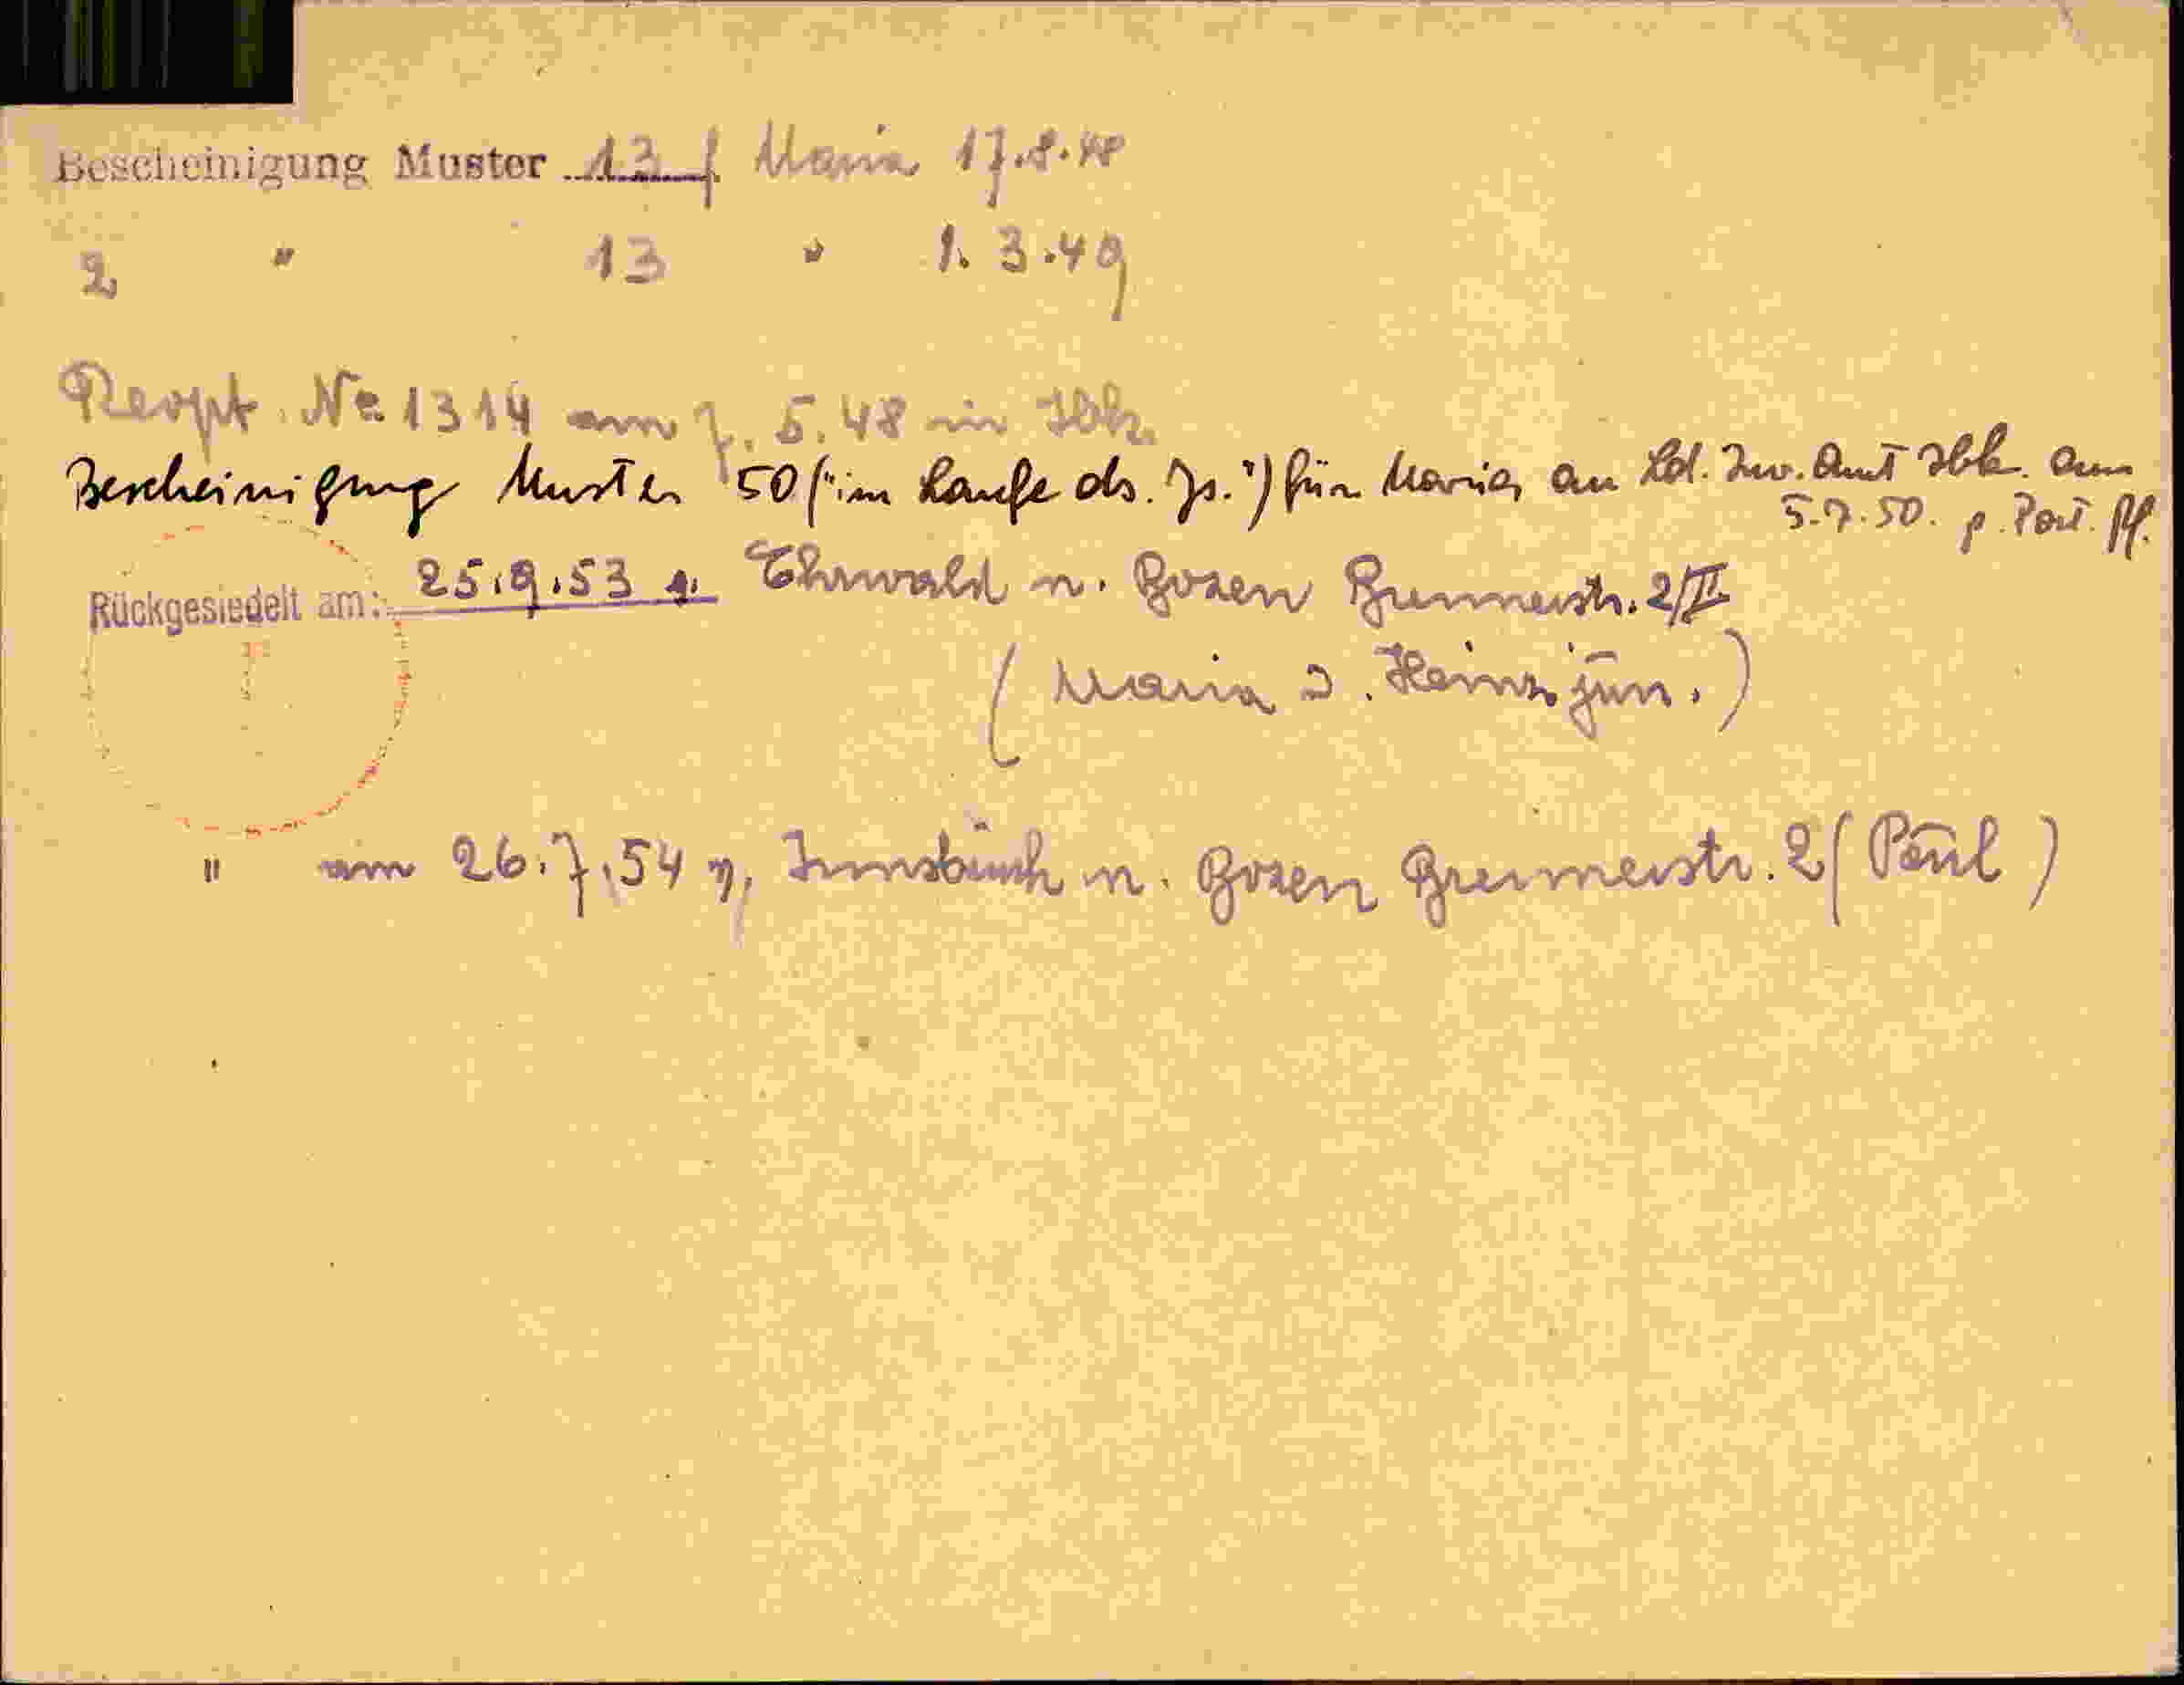 Bescheinigung Muster 13 f Maria 17.8.48
2 " 13 " 1.3.49
Reopt. No 1314 am 7.5.48 in Ibk.
Bescheinigung Muster 50 ("im Laufe ds. Js.") für Maria an Ld. Inv. Amt Ibk. am
5.7.50. p. Post.
Rückgesiedelt am: 25.9.53 v. Ehrwald n. Bozen Brennerstr. 2/II
(Maria u. Heinz jun.)
" am 26.7.54 v. Innsbruck n. Bozen Brennerstr. 2 (Paul)